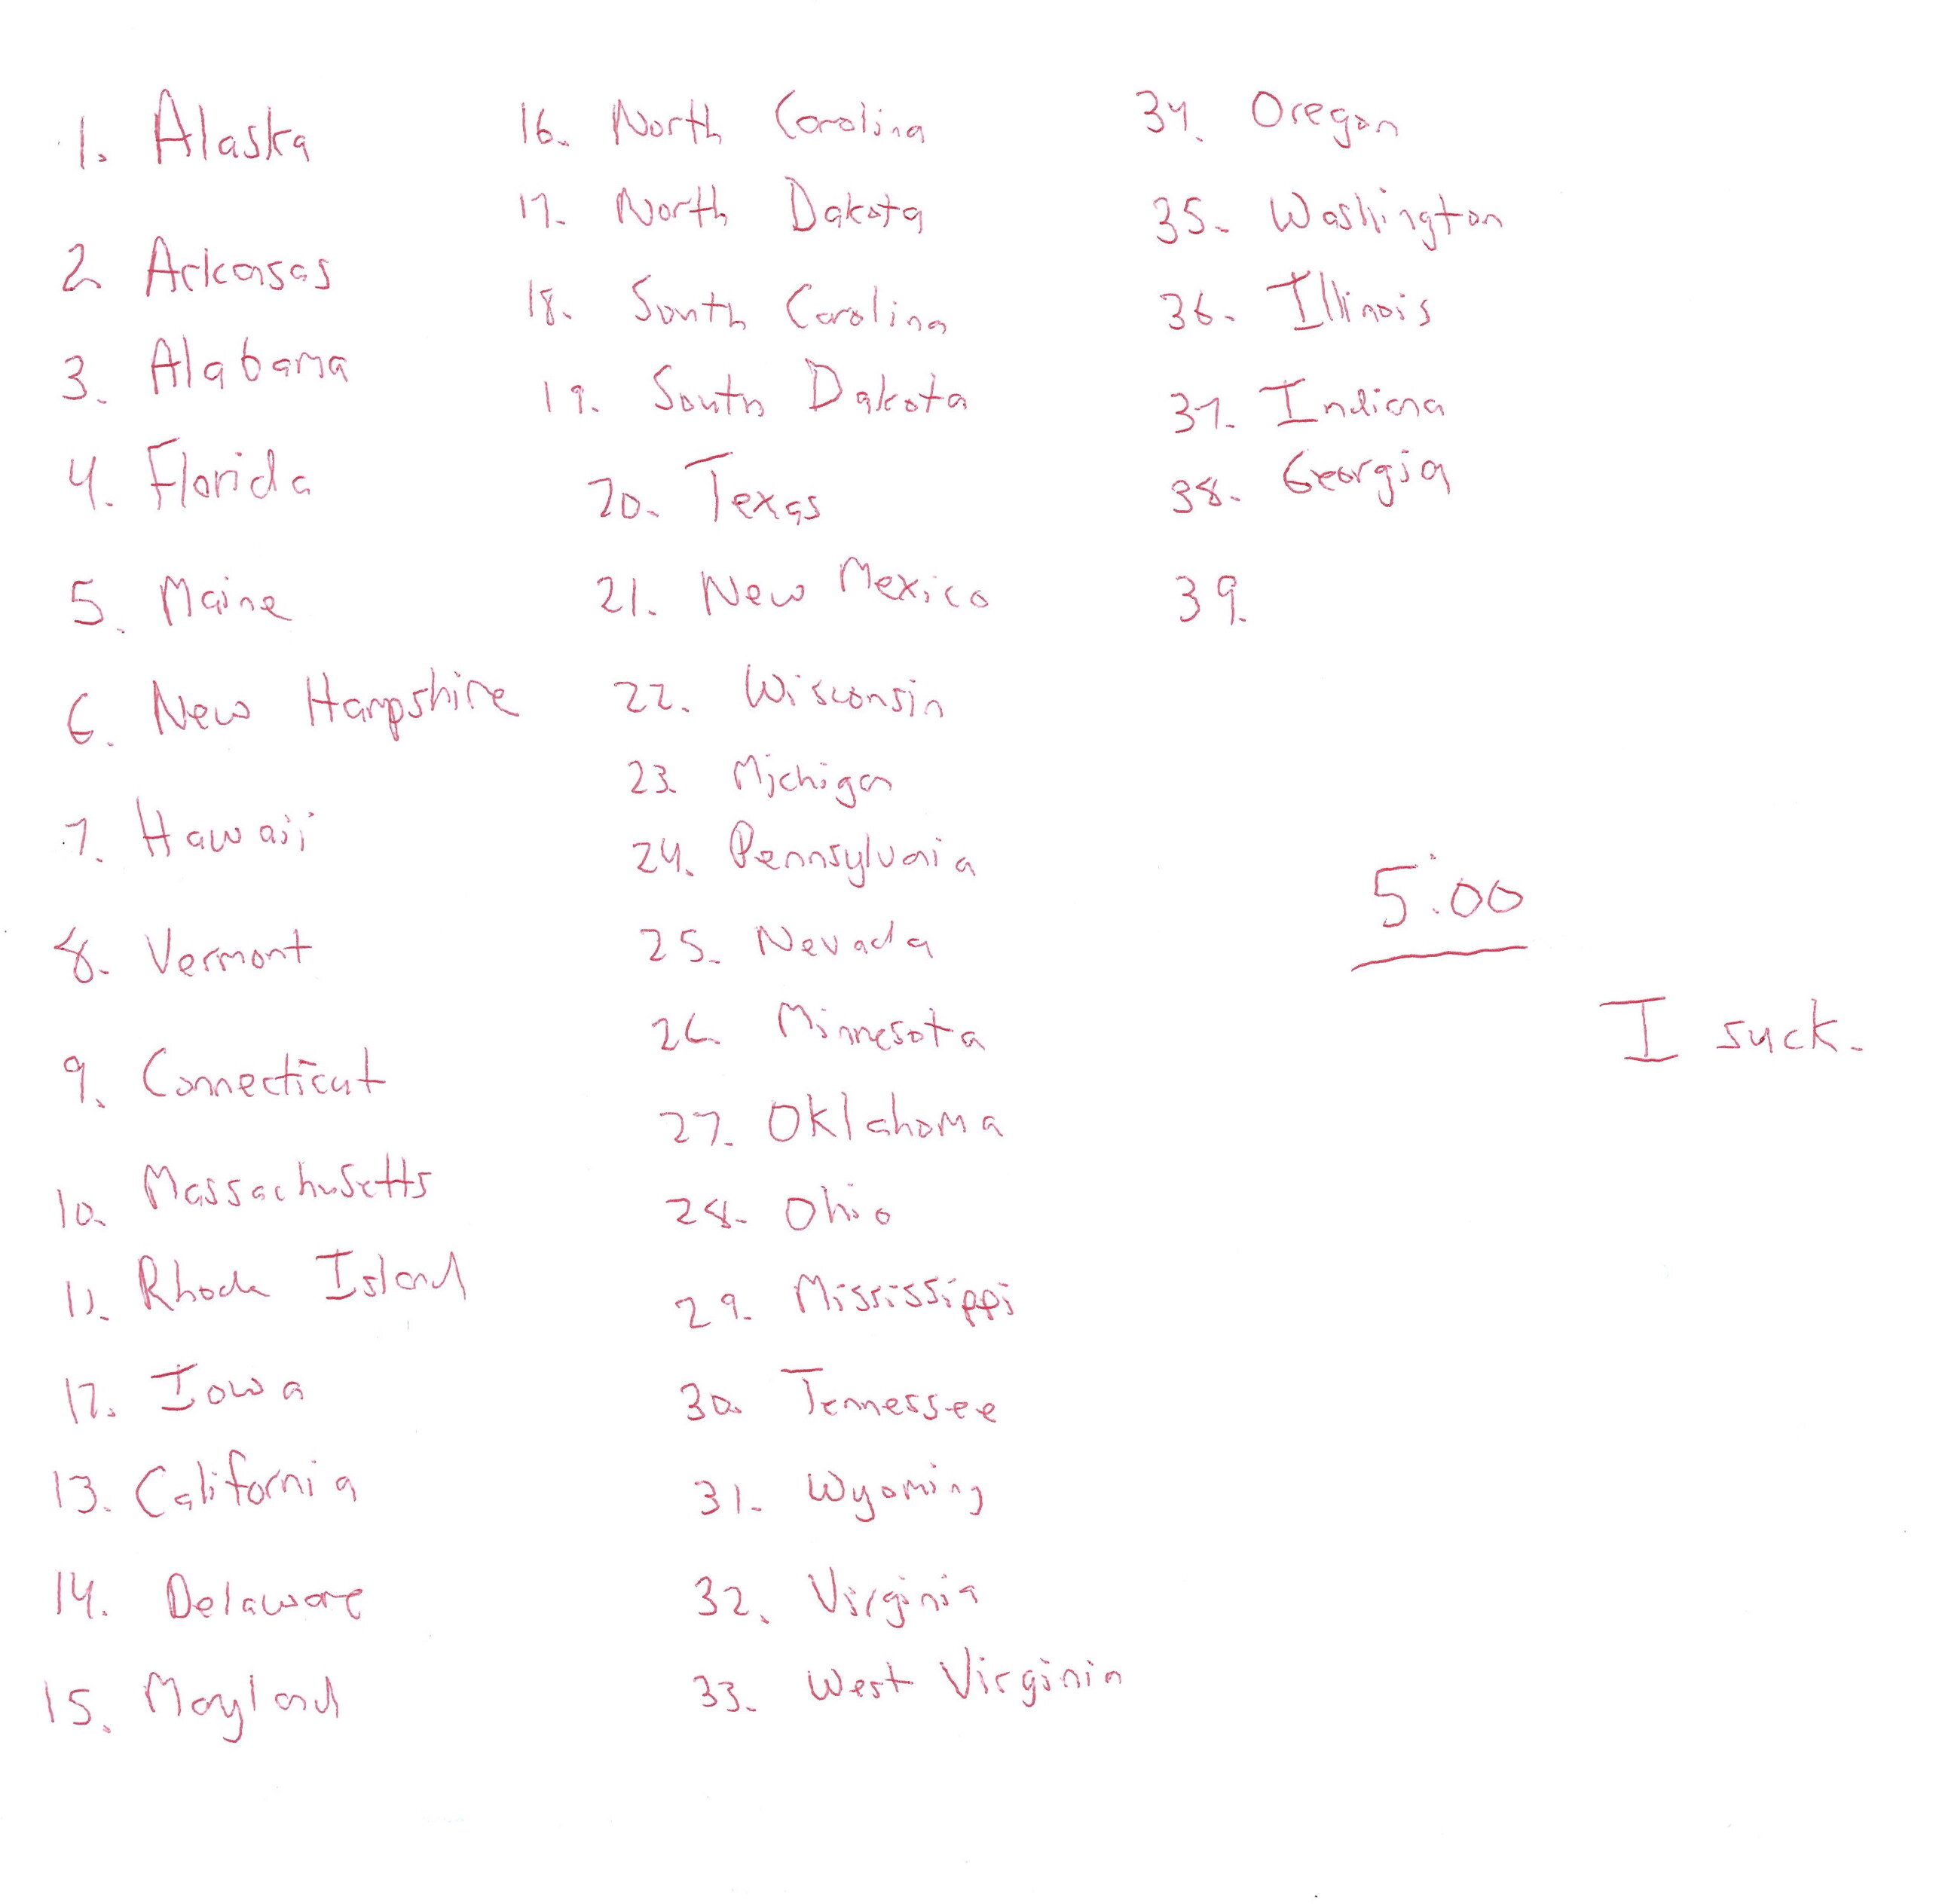 1. Alaska
2. Arkansas
3. Alabama
4. Florida
5. Maine
6. New Hampshire
7. Hawaii
8. Vermont
9. Connecticut
10. Massachusetts
11. Rhode Island
12. Iowa
13. California
14. Delaware
15. Maryland
16. North Carolina
17. North Dakota
18. South Carolina
19. South Dakota
20. Texas
21. New Mexico
22. Wisconsin
23. Michigan
24. Pennsylvania
25. Nevada
26. Minnesota
27. Oklahoma
28. Ohio
29. Mississippi
30. Tennessee
31. Wyoming
32. Virginia
33. West Virginia
34. Oregon
35. Washington
36. Illinois
37. Indiana
38. Georgia
39.
5:00
I suck.